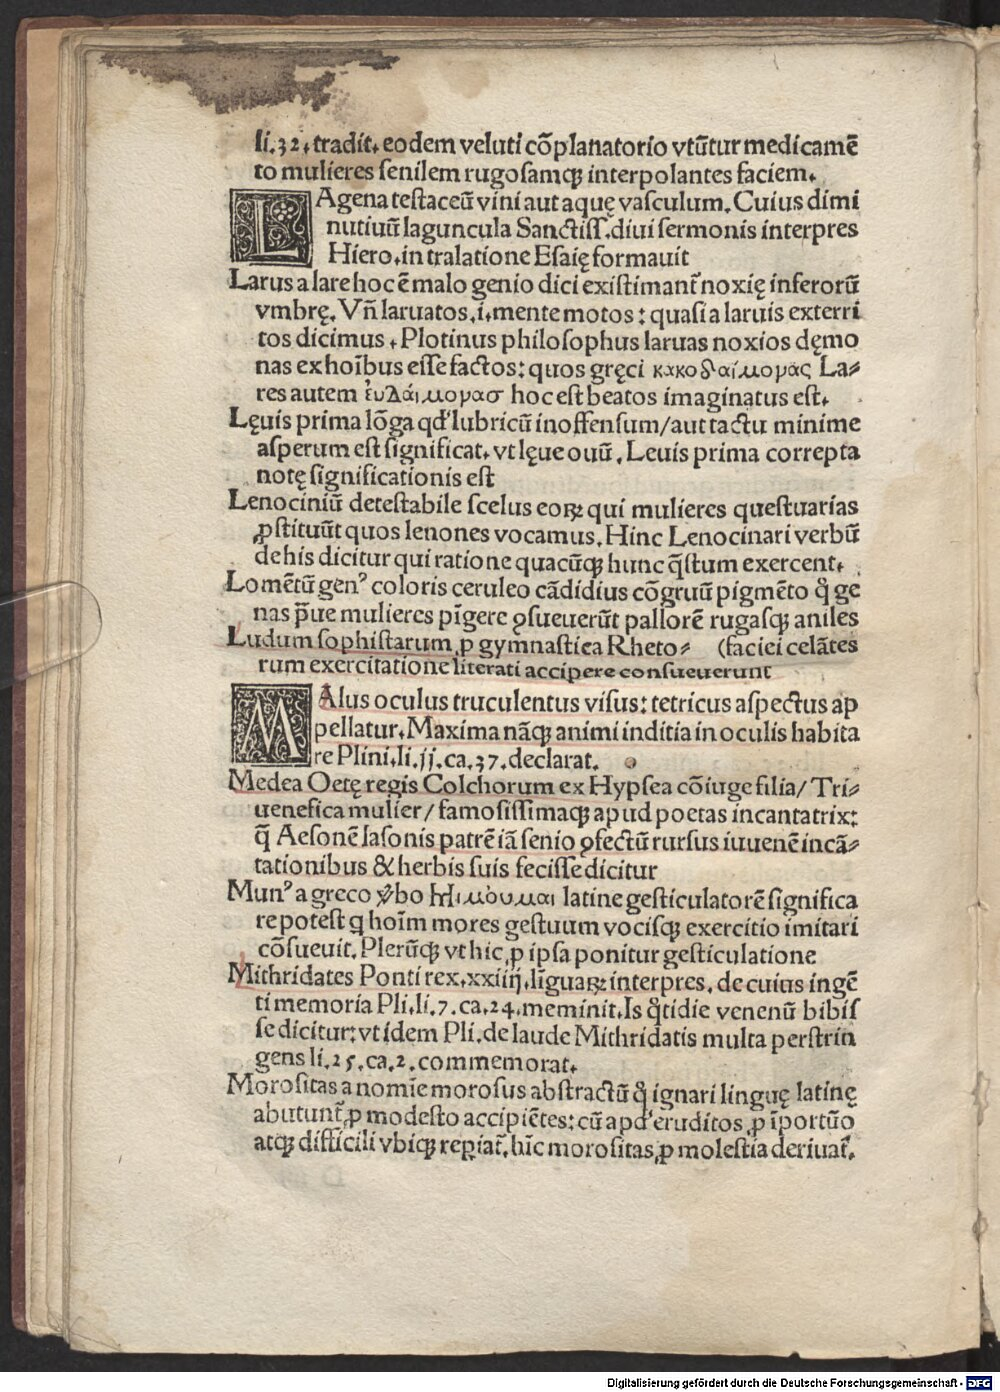 li.32.tradit.eodem veluti cõplanatorio vtũtur medicamẽ
to mulieres senilem rugosamqꝫ interpolantes faciem.
LAgena testaceũ vini aut aquę vasculum. Cuius dimi
nutiuũ laguncula Sanctiss.diui sermonis interpres
Hiero.in tralatione Esaię formauit
Larus a lare hoc ẽ malo genio dici existimant᷑ noxię inferorũ
vmbrę. Vñ laruatos.i.mente motos: quasi a laruis exterri
tos dicimus. Plotinus philosophus laruas noxios dęmo
nas ex hoĩbus esse factos: quos gręci κακοδαίμονας La⸗
res autem ἐυδάιμονασ hoc est beatos imaginatus est.
Lęuis prima lõga qđ lubricũ inoffensum/aut tactu minime
asperum est significat. vt lęue ouũ. Leuis prima correpta
notę significationis est
Lenociniũ detestabile scelus eoꝝ qui mulieres questuarias
ꝓstituũt quos lenones vocamus. Hinc Lenocinari verbũ
de his dicitur qui ratione quacũqꝫ hunc q̃stum exercent.
Lomẽtũ genꝰ coloris ceruleo cãdidius cõgruũ pigmẽto q̊ ge
nas p̃ue mulieres pĩgere ꝯsueuerũt pallorẽ rugasqꝫ aniles
Ludum sophistarum ꝓ gymnastica Rheto⸗ (faciei celãtes
rum exercitatione literati accipere consueuerunt
MAlus oculus truculentus visus: tetricus aspectus ap
pellatur. Maxima nãqꝫ animi inditia in oculis habita
re Plini.li.ij.ca.37.declarat.
Medea Oetę regis Colchorum ex Hypsea cõiuge filia/ Tri⸗
uenefica mulier/ famosissimaqꝫ apud poetas incantatrix:
q̃ Aesonẽ Iasonis patrẽ iã senio ꝯfectũ rursus iuuenẽ incã⸗
tationibus & herbis suis fecisse dicitur
Munꝰ a greco ꝟbo μιμὸυμαι latine gesticulatorẽ significa
re potest q hoĩm mores gestuum vocisqꝫ exercitio imitari
cõsueuit. Plerũqꝫ vt hic ꝓ ipsa ponitur gesticulatione
Mithridates Ponti rex.xxiiij.lĩguaꝝ interpres. de cuius ingẽ
ti memoria Pli.li.7.ca.24.meminit. Is q̊tidie venenũ bibis
se dicitur: vt idem Pli.de laude Mithridatis multa perstrin
gens li.25.ca.2.commemorat.
Morositas a nomĩe morosus abstractũ q̊ ignari linguę latinę
abutunt᷑ ꝓ modesto accipiẽtes: cũ apđ eruditos ꝓ ĩportũo
atqꝫ difficili vbiqꝫ reꝑiat᷑. hĩc morositas ꝓ molestia deriuat᷑.
Digitalisierung gefördert durch die Deutsche Forschungsgemeinschaft - DFG